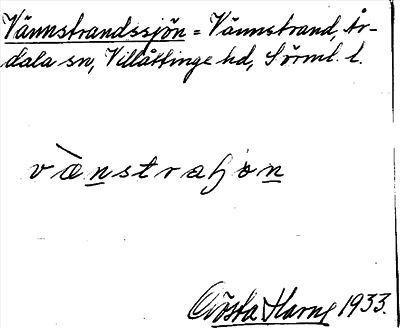 Vännstrandssjön = Vännstrand, År-
dala sn, Villåttinge hd, Sörml. l.
vànstraʃɷn
Gösta Harne 1933.